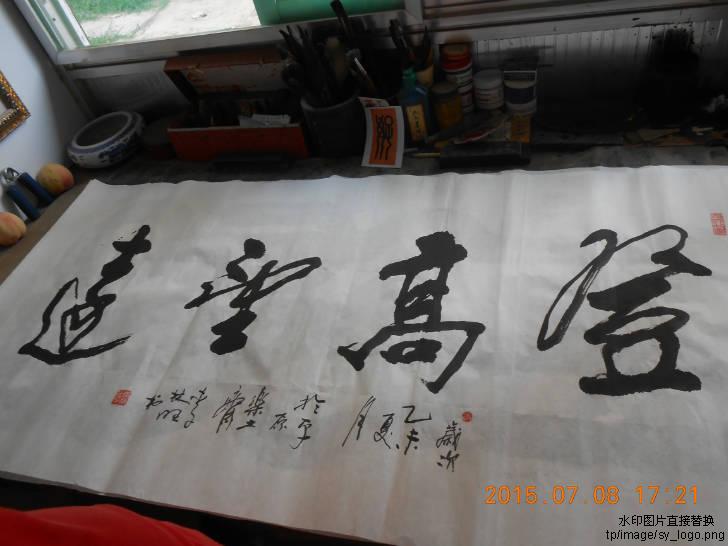 登高望遠
歲次
乙未
夏月
於平
原
樂土
齋
2015.07.08 17:21
水印图片直接替换
tp/image/sy_logo.png